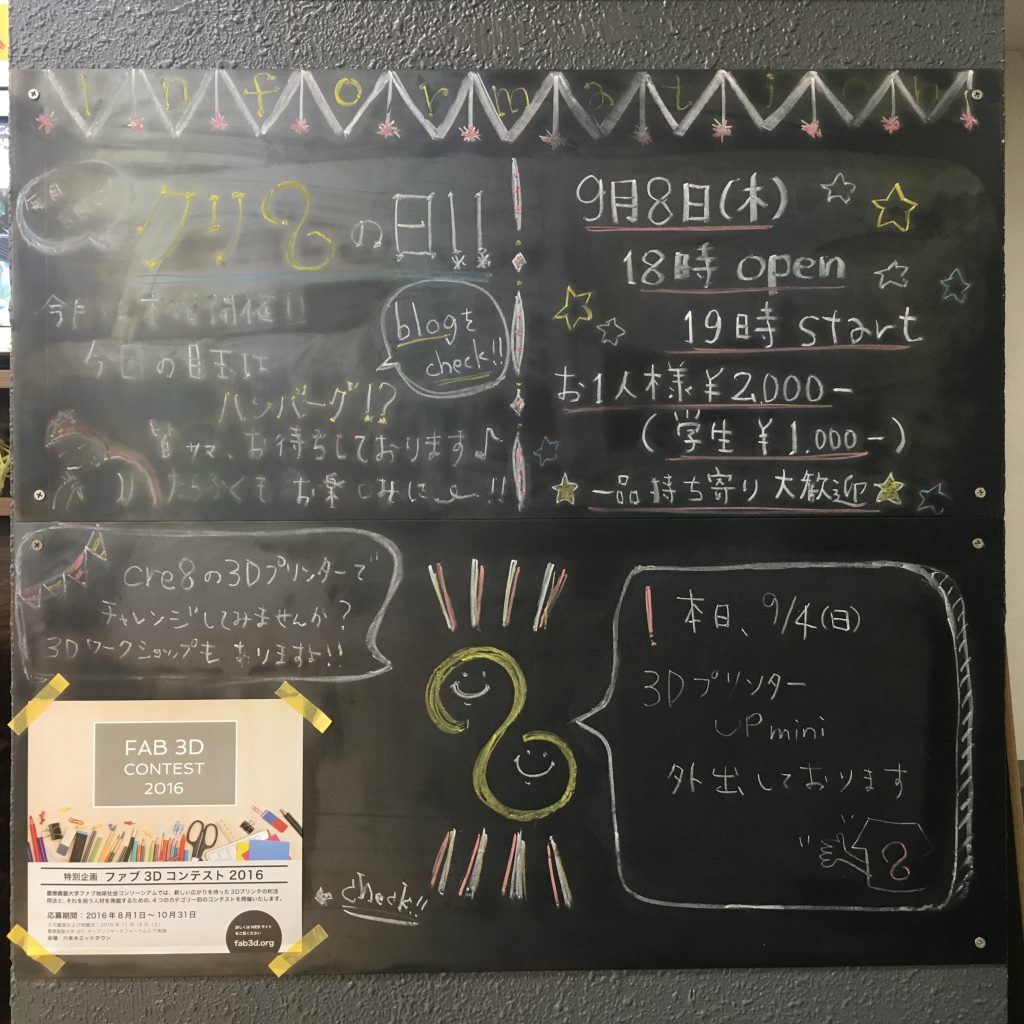 information
毎月8日は
クリ8の日!!
今月も木曜開催!!
今回の目玉は
ハンバーグ!?
皆サマ、お待ちしております♪
おたらふくも お楽しみに〜!!
blogを
check!!
9月8日(木)
18時 open
19時 start
お1人様 ¥2,000-
(学生 ¥1,000-)
一品持ち寄り大歓迎
cre8の3Dプリンターで
チャレンジしてみませんか?
3Dワークショップも おりますよ!!
FAB 3D
CONTEST
2016
特別企画 ファブ 3D コンテスト 2016
慶應義塾大学ファブ地球社会コンソーシアムでは、新しい広がりを持った3Dプリンタの利活
用法と、それを担う人材を発掘するための、4つのカテゴリー別のコンテストを開催いたします。
応募期間:2016年8月1日〜10月31日
慶應義塾大学 SFC オープンリサーチフォーラムにて実施
会場:六本木ミッドタウン
詳しくは WEB サイト
をご覧ください
fab3d.org
check!!
! 本日、9/4(日)
3Dプリンター
UP mini
外出しております
8